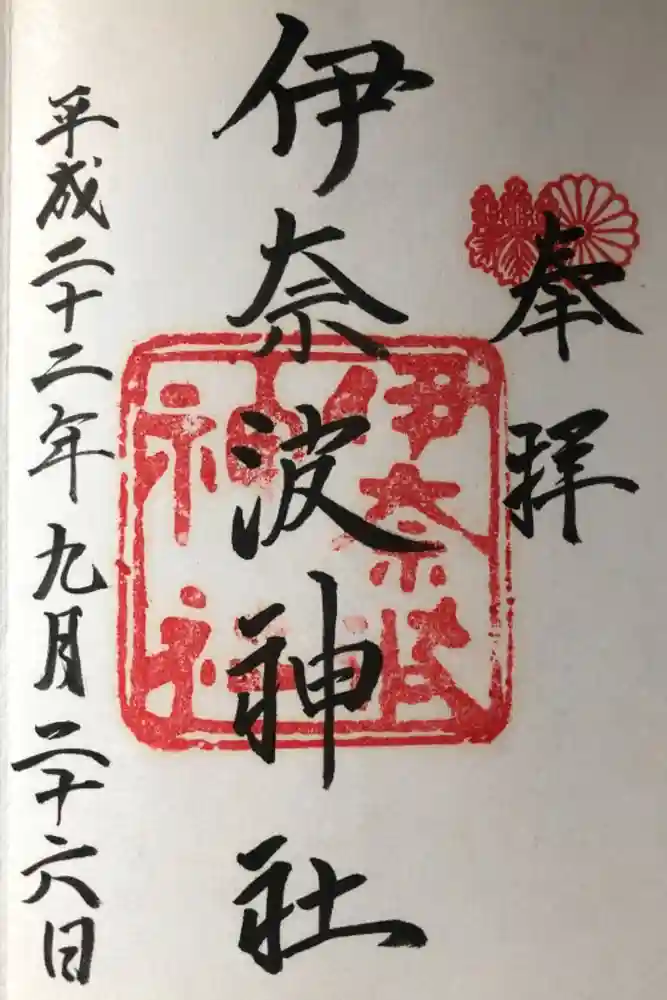 奉拝
伊奈波神社
伊奈波
神社
平成二十二年九月二十六日